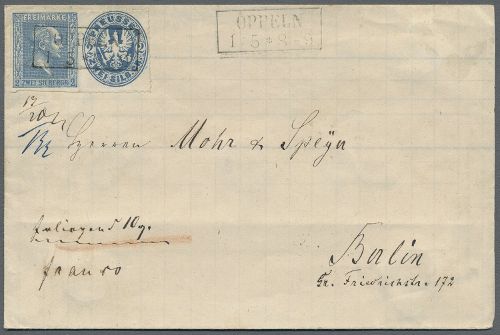 FREIMARKE
ZWEI SILBERGR.
PREUSSEN
ZWEI SILB. GR.
OPPELN
Herren Mohr & Speyer
einliegend 10 g.
franco
Berlin
Gr. Friedrichstr. 172